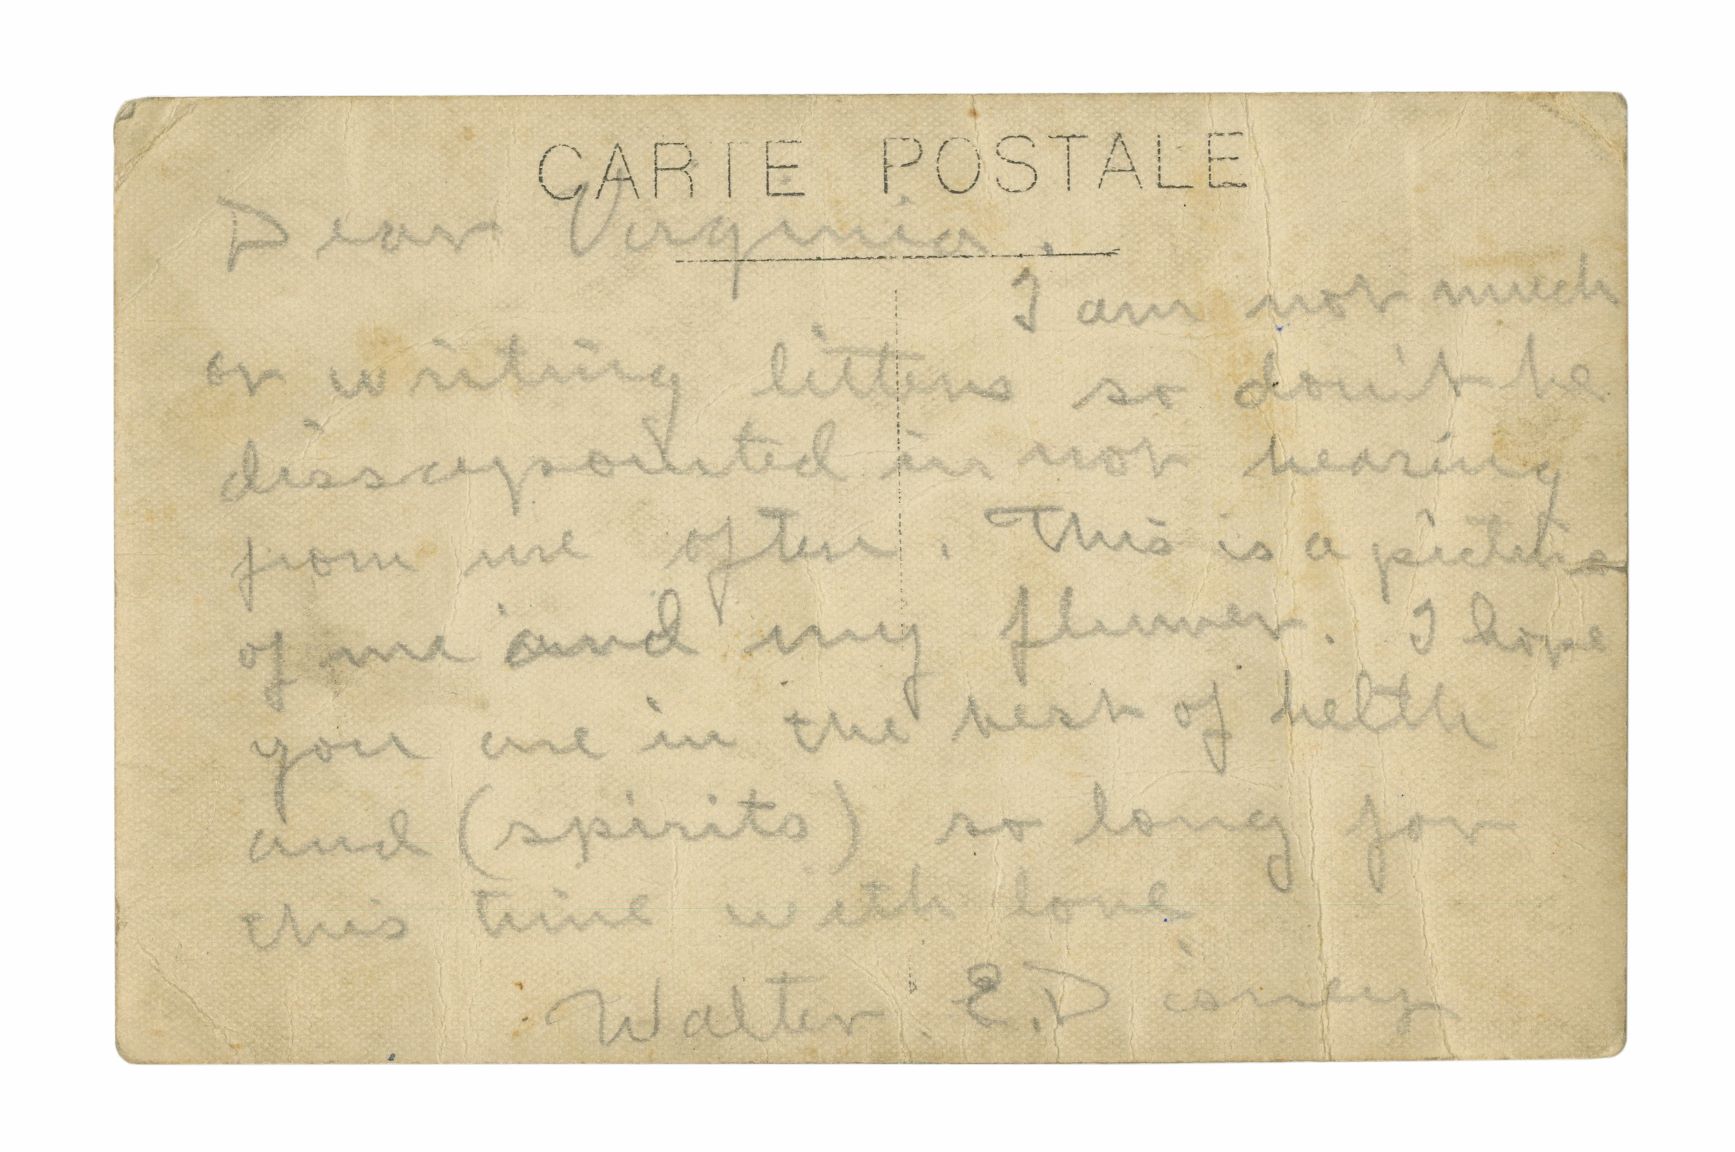 CARTE POSTALE
Dear Virginia.
I am not much
on writing litters so don't be
dissapointed in not hearing
from me often. This is a picture
of me and my fluwer. I hope
you are in the best of helth
and (spirits) so long for
this time with love
Walter E. Disney